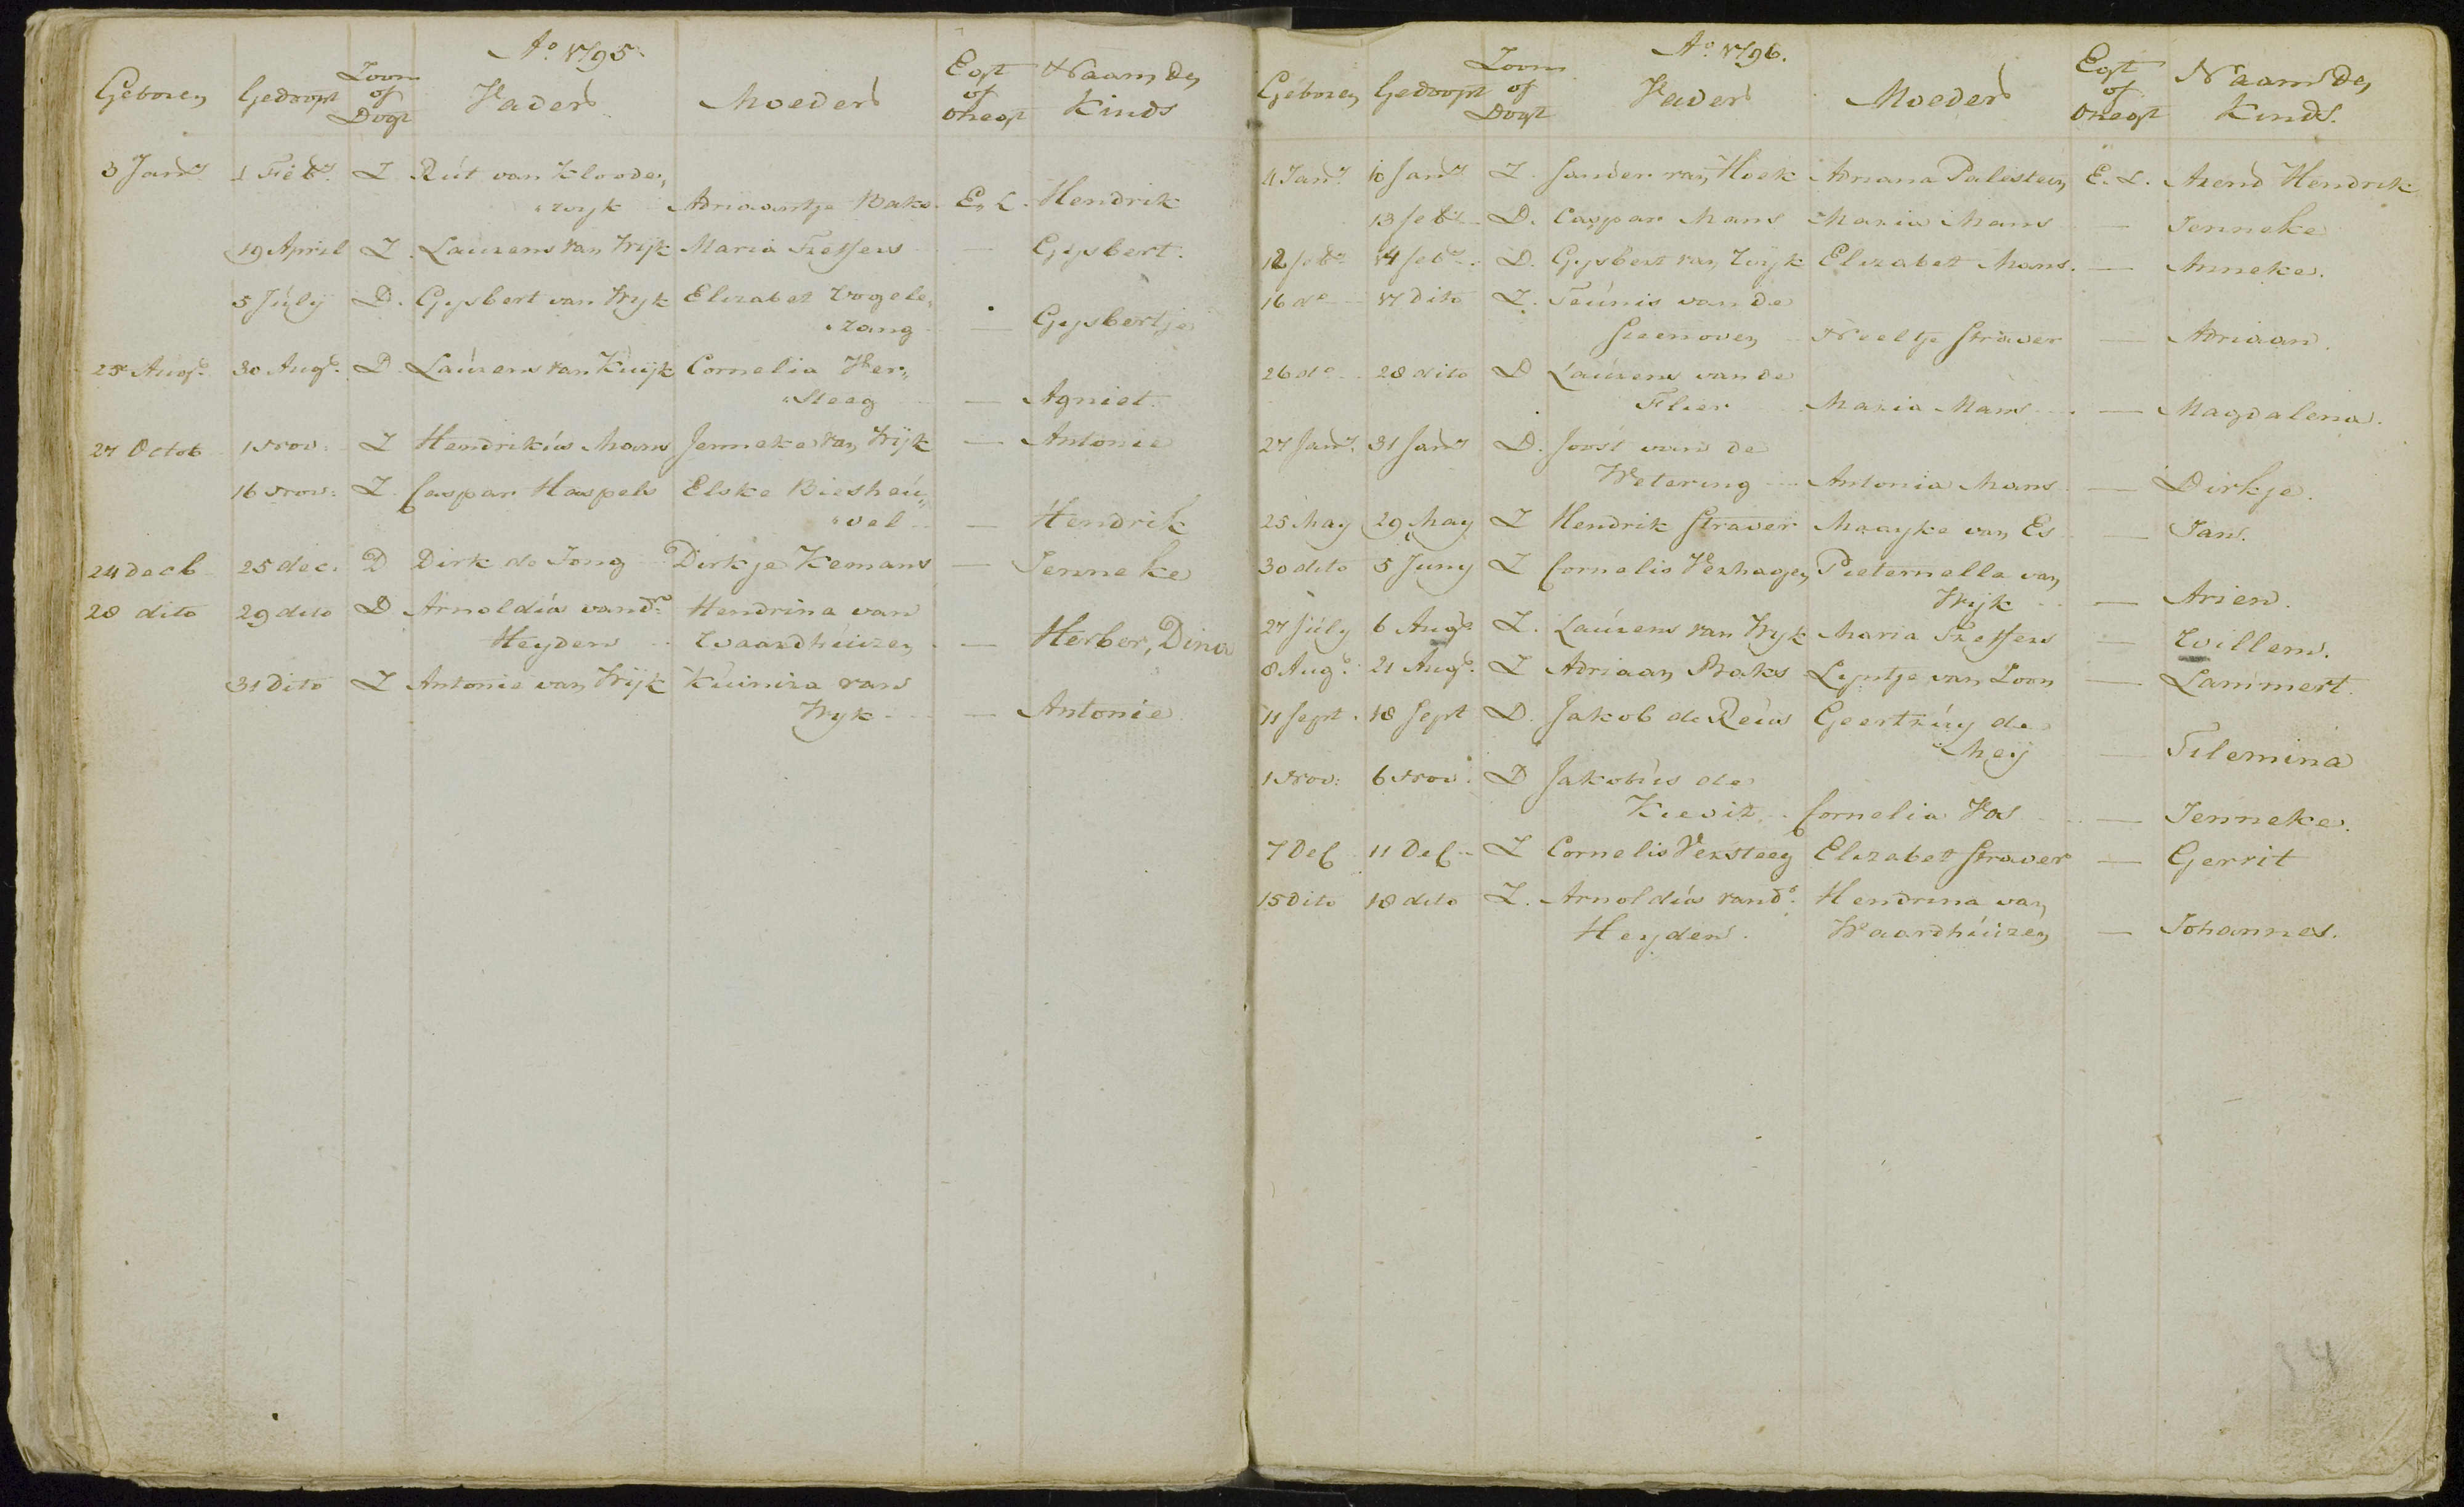 Ao. 1795.
Geboren Gedoopt Zoon of Dogt Vader Moeder Egt of Onegt Naam des Kinds
3 Janr. 1 Febr. Z Rút van Kloode,,
,,wyk Adriaantje Baks. E, L. Hendrik
19 April Z. Laúrens van Wijk Maria — Gysbert.
5 Júlÿ D. Gysbert van Wyk Elizabet Vogele,,
,,zang — Gysbertje
25 Augs. 30 Augs. D. Laúrens van Kúijk Cornelia Ver,,
,,Steeg — Agniet.
27 Octob 1 Nov: Z Hendrikús Mans Jenneke van Wijk — Antonie
16 Nov: Z Caspar Haspels Elske Biesheú,,
,,vel — Hendrik
24 decb 25 dec. D Dirk de Jong Dirkje Kemans — Jenneke
28 dito 29 dito D Arnoldús vandr. Hendrina van
Heyden Waardhúizen — Herber, Dina
31 Dito Z Antonie van Wijk Kúinira van
Wyk — Antonie
Ao. 1796.
Geboren Gedoopt Zoon of Dogt Vader Moeder Egt of Onegt Naam des Kinds.
4 Janr. 10 Janr Z. Sander van Hoek Adriana Palestein E. L. Arend Hendrik
13 febr. D. Caspar Mans Maria Mans — Jenneke
12 febr 14 febr. D. Gysbert van Wyk Elizabet Mans. — Anneke.
16 do 17 dito Z. Teúnis van de
Steenoven Neeltje Straver — Adriaan.
26 do 28 dito D Laúrens van de
Flier Maria Mans — Magdalena.
27 Janr. 31 Janr D. Joost van de
Wetering Antonia Mans — Dirkje.
25 May 29 May Z Hendrik Straver Maayke van Es — Jan.
30 dito 5 Juny Z Cornelis Verhagen Pieternella van
Wyk — Arien.
27 Júly 6 Augs Z. Laúrens van Wyk Maria — Willem.
8 Augs. 21 Augs. Z Adriaan Baks Lyntje van Loon — Lammert
11 Sept. 18 Sept D. Jakob de Reús Geertrúy de
Meij — Tilemina
1 Nov: 6 Nov. D Jakobús de
Kievit Cornelia Vos — Jenneke.
7 Dec 11 Dec Z Cornelis Versteeg Elizabet Straver — Gerrit
15 Dito 18 dito Z. Arnoldús vandr. Hendrina van
Heyden. Waardhúizen — Johannes.